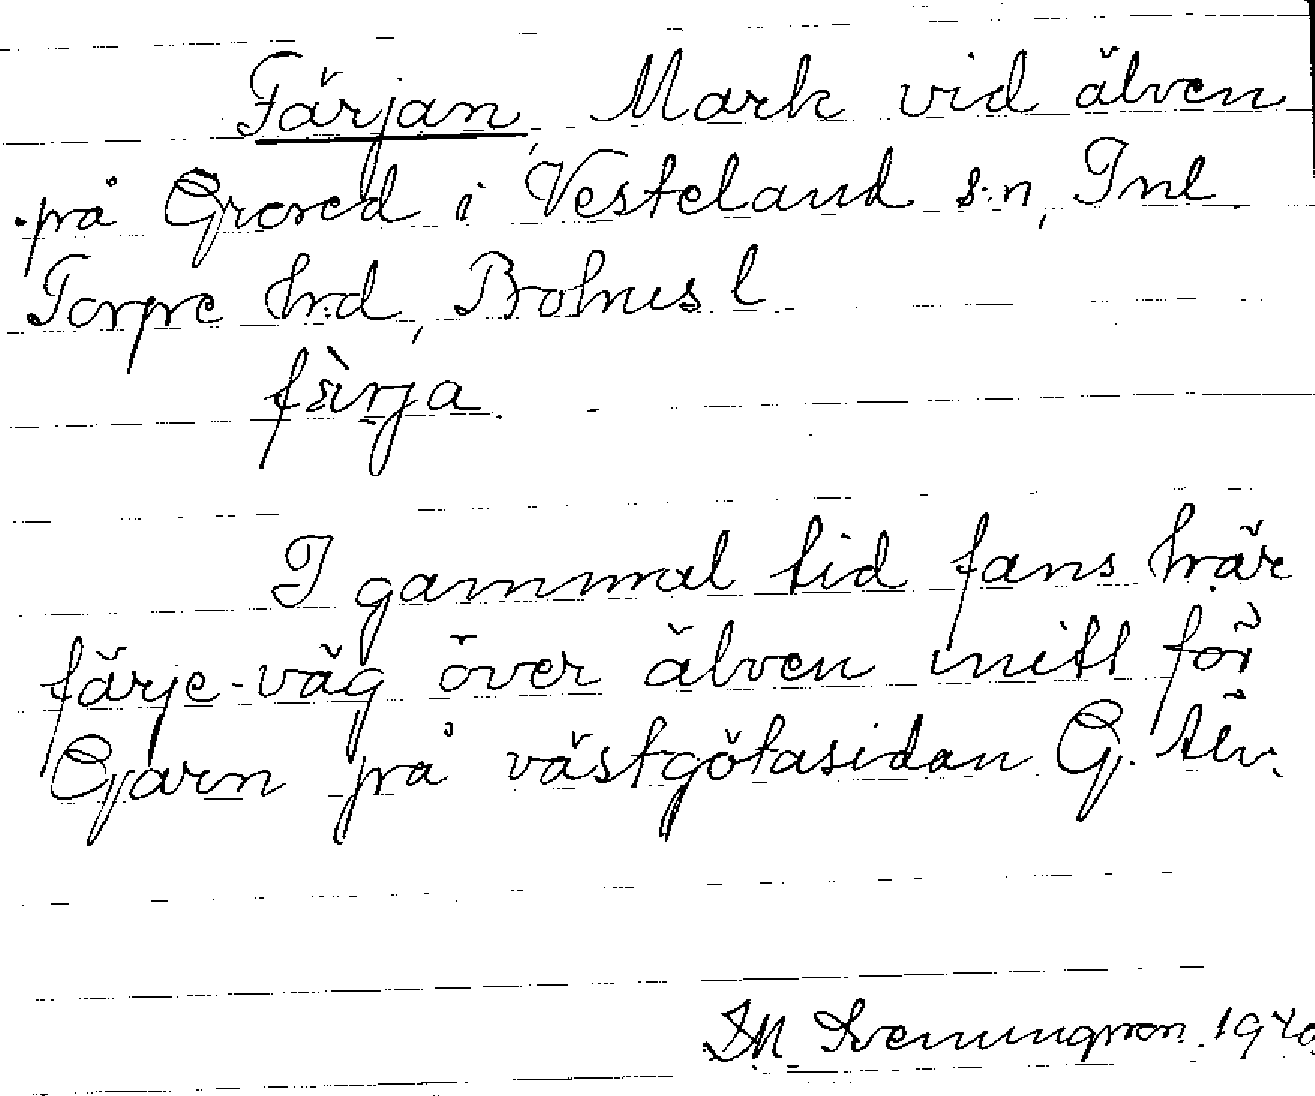 Färjan, Mark vid älven
på Grored i Vesteland s:n, Inl.
Torpe hrd, Bohusl
färja.
I gammal tid fans här
färje-väg över älven mitt för
Garn på västgötasidan G. älv.
1940